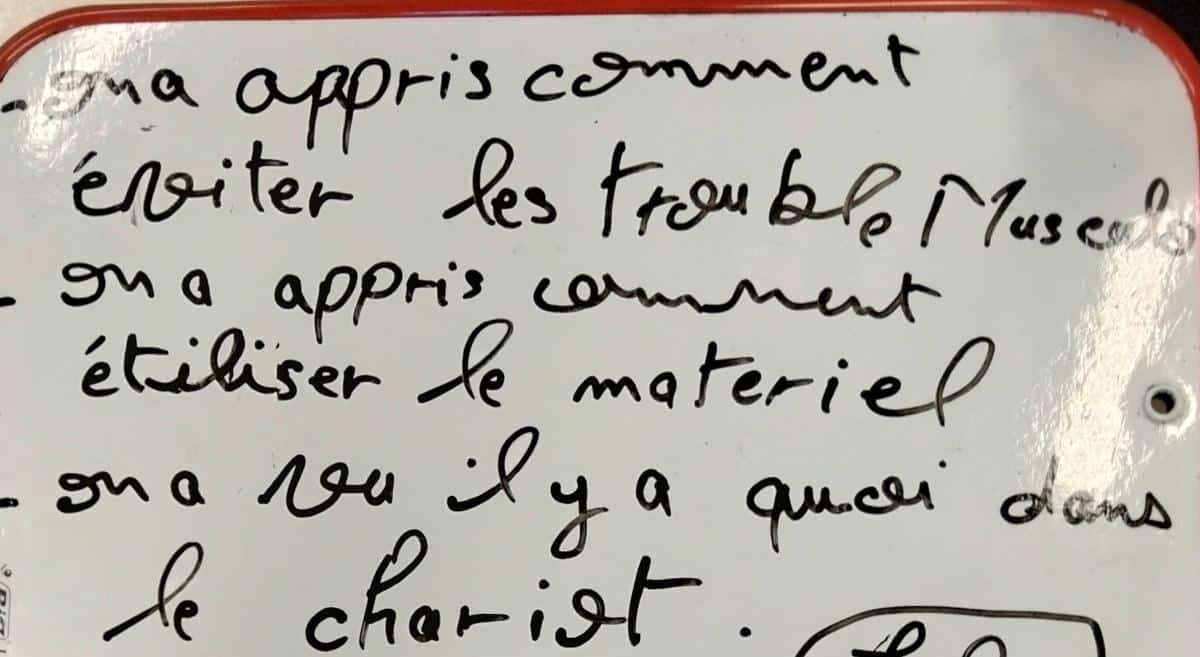 - on a appris comment
éviter les trouble Musculo
- on a appris comment
étiliser le materiel
- on a vu il y a quoi dans
le chariot.